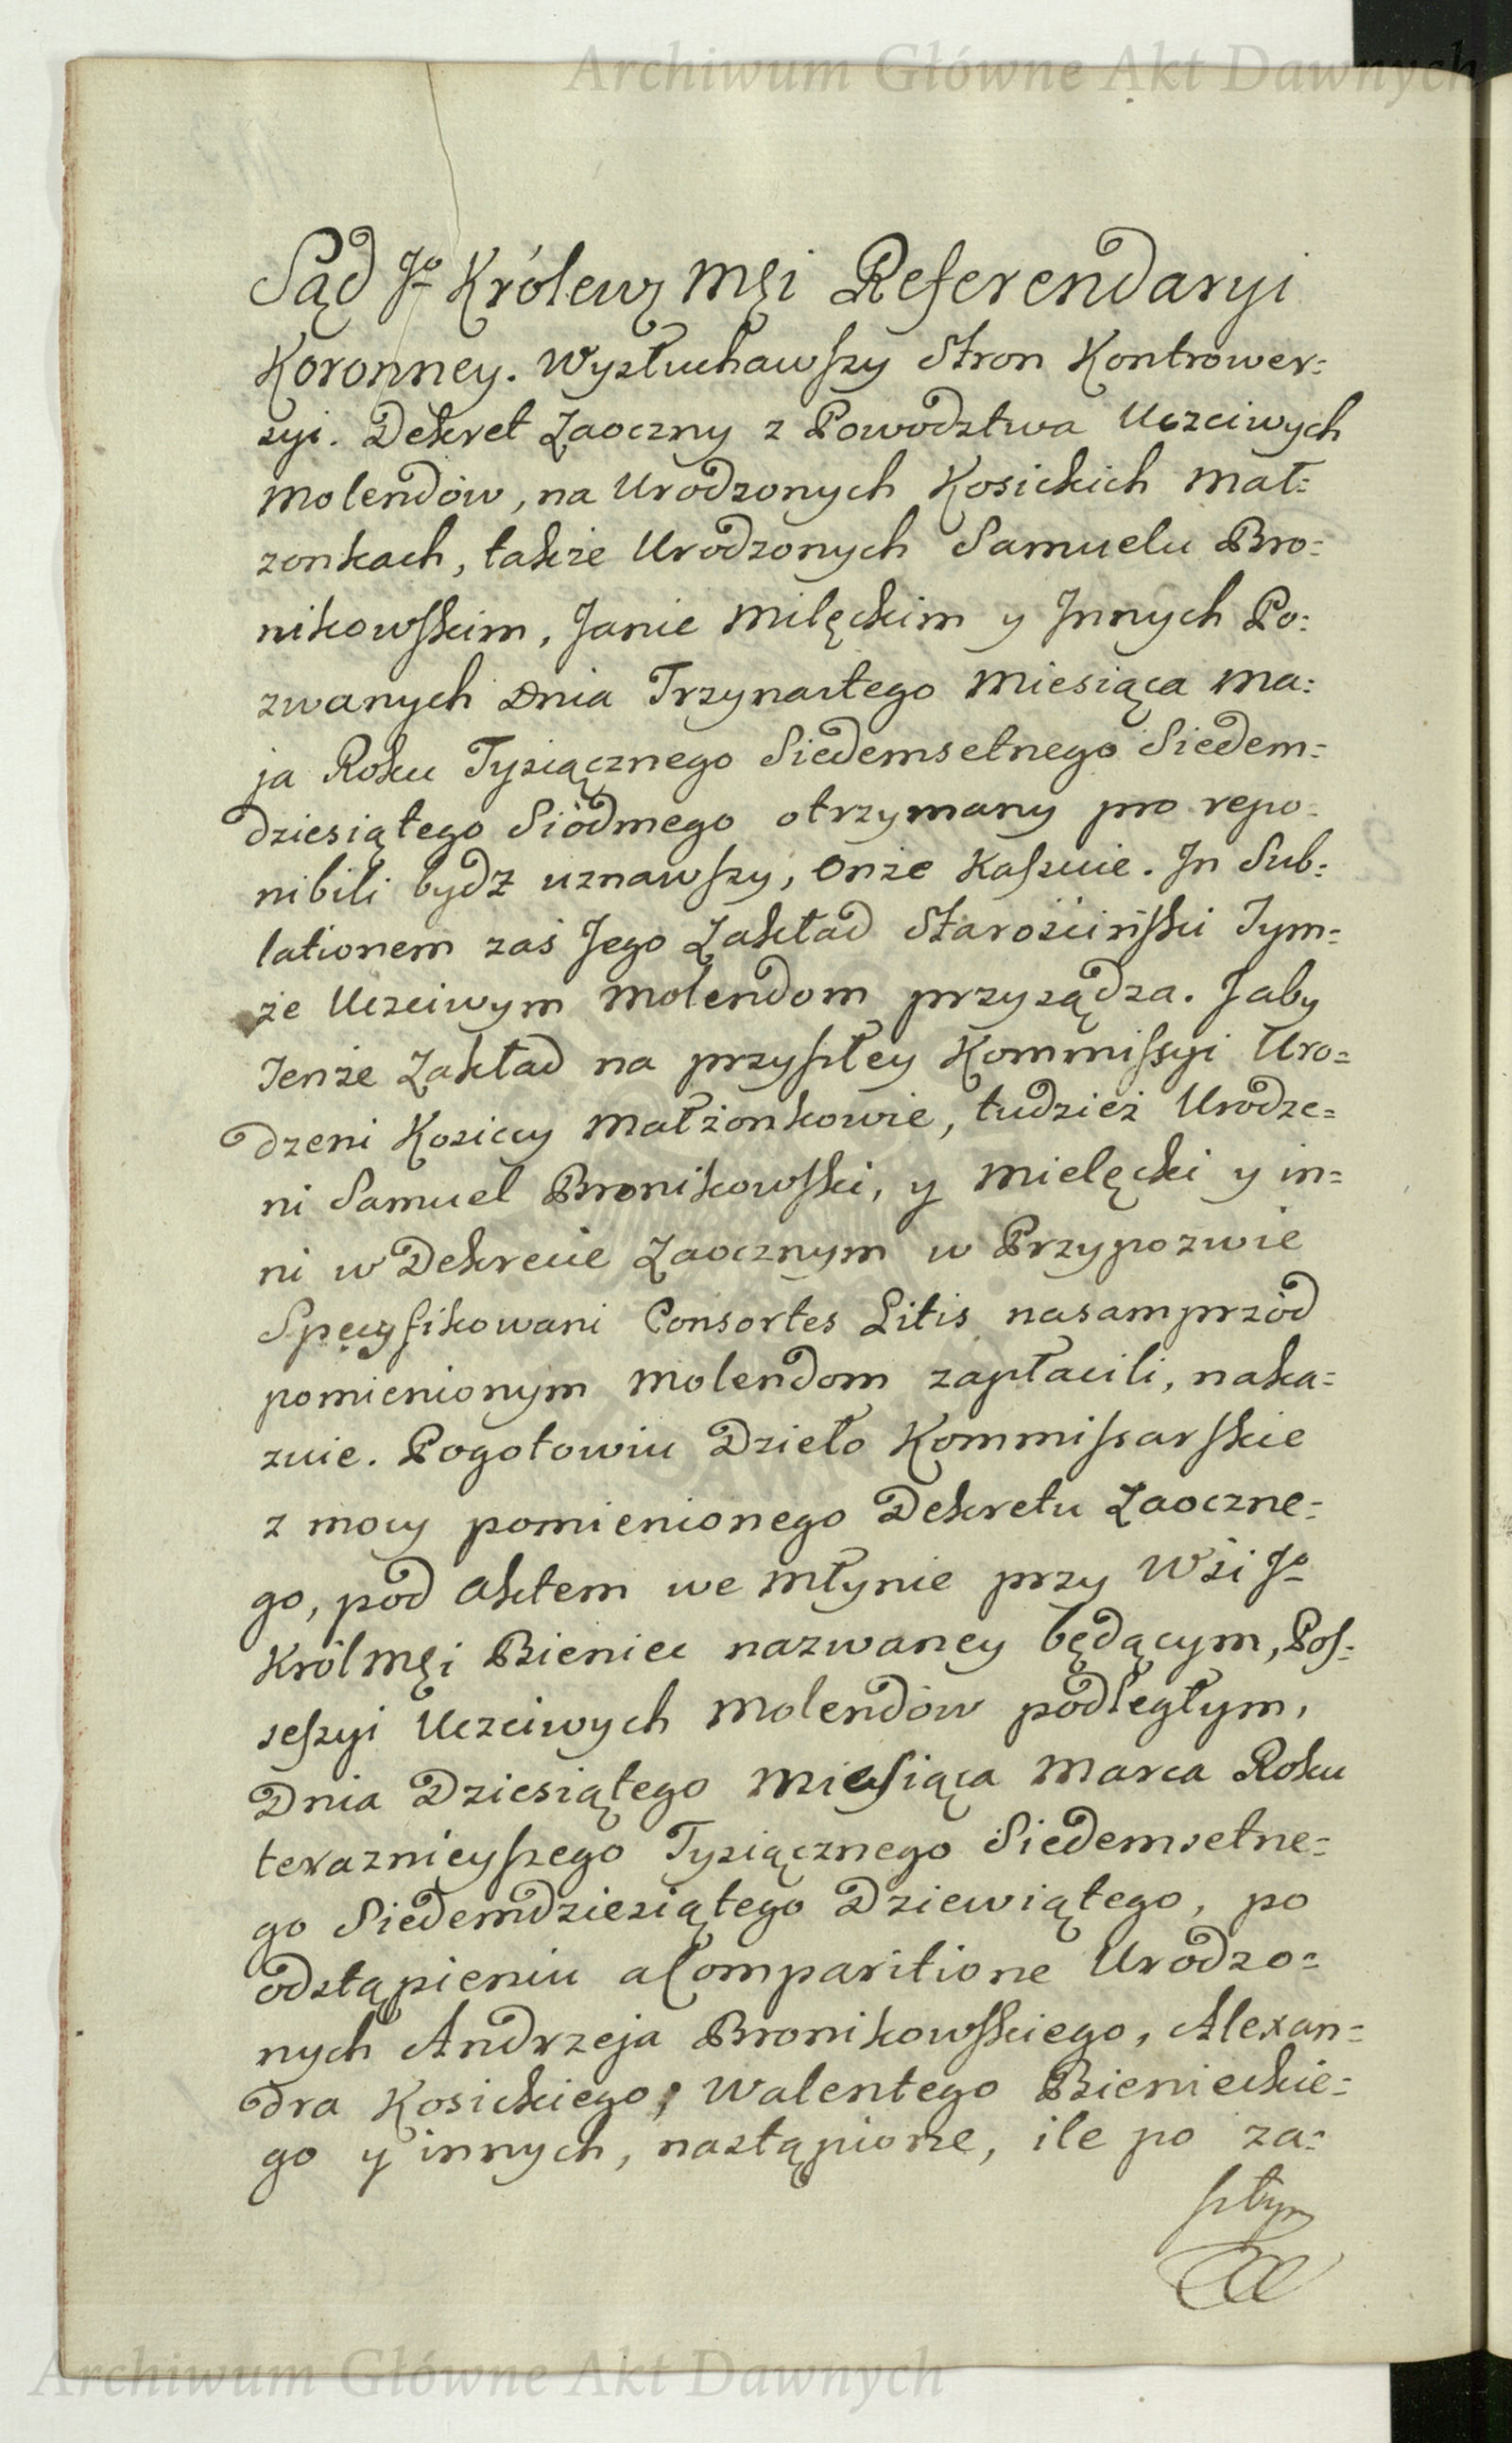 Archiwum Główne Akt Dawnych
Sąd Jo Królewȝ Męi Referendaryi
Koronney. Wysłuchawszy Stron Kontrower=
syi. Dekret Zaoczny z Powodztwa Uczciwych
Molendów, na Urodzonych Kosickich Mał=
zonkach, także Urodzonych Samuelu Bro=
nikowskim, Janie Milęckim y Innych Po=
zwanych Dnia Trzynastego Miesiąca Ma=
ja Roku Tysiącznego Siedemsetnego Siedem=
dziesiątego Siódmego otrzymany pro repo=
nibili bydz uznawszy, Onże Kassuie. In Sub=
lationem zaś Jego Zakład Starościński Tym=
że Uczciwym Molendom przysądza. Jaby
Tenże Zakład na przyszłey Kommissyi Uro=
dzeni Kosiccy Małżonkowie, tudzież Urodze=
ni Samuel Bronikowski, y Mielęcki y in=
ni w Dekrecie Zaocznym w Przypozwie
Specyfikowani Consortes Litis nasamprzód
pomienionym Molendom zapłacili, naka=
zuie. Pogotowiu Dzieło Kommissarskie
z mocy pomienionego Dekretu Zaoczne=
go, pod aktem we Młynie przy Wsi Jo
Król Męi Bieniec nazwaney będącym, Pos=
sessyi Uczciwych Molendów podległym,
Dnia Dziesiątego Miesiąca Marca Roku
teraznieyszego Tysiącznego Siedemsetne=
go Siedemdziesiątego Dziewiątego, po
odstąpieniu a Comparitione Urodzo=
nych Andrzeja Bronikowskiego, Alexan=
dra Kosickiego, Walentego Bienieckie=
go y innych, nastąpione, ile po za=
szłym
Archiwum Główne Akt Dawnych